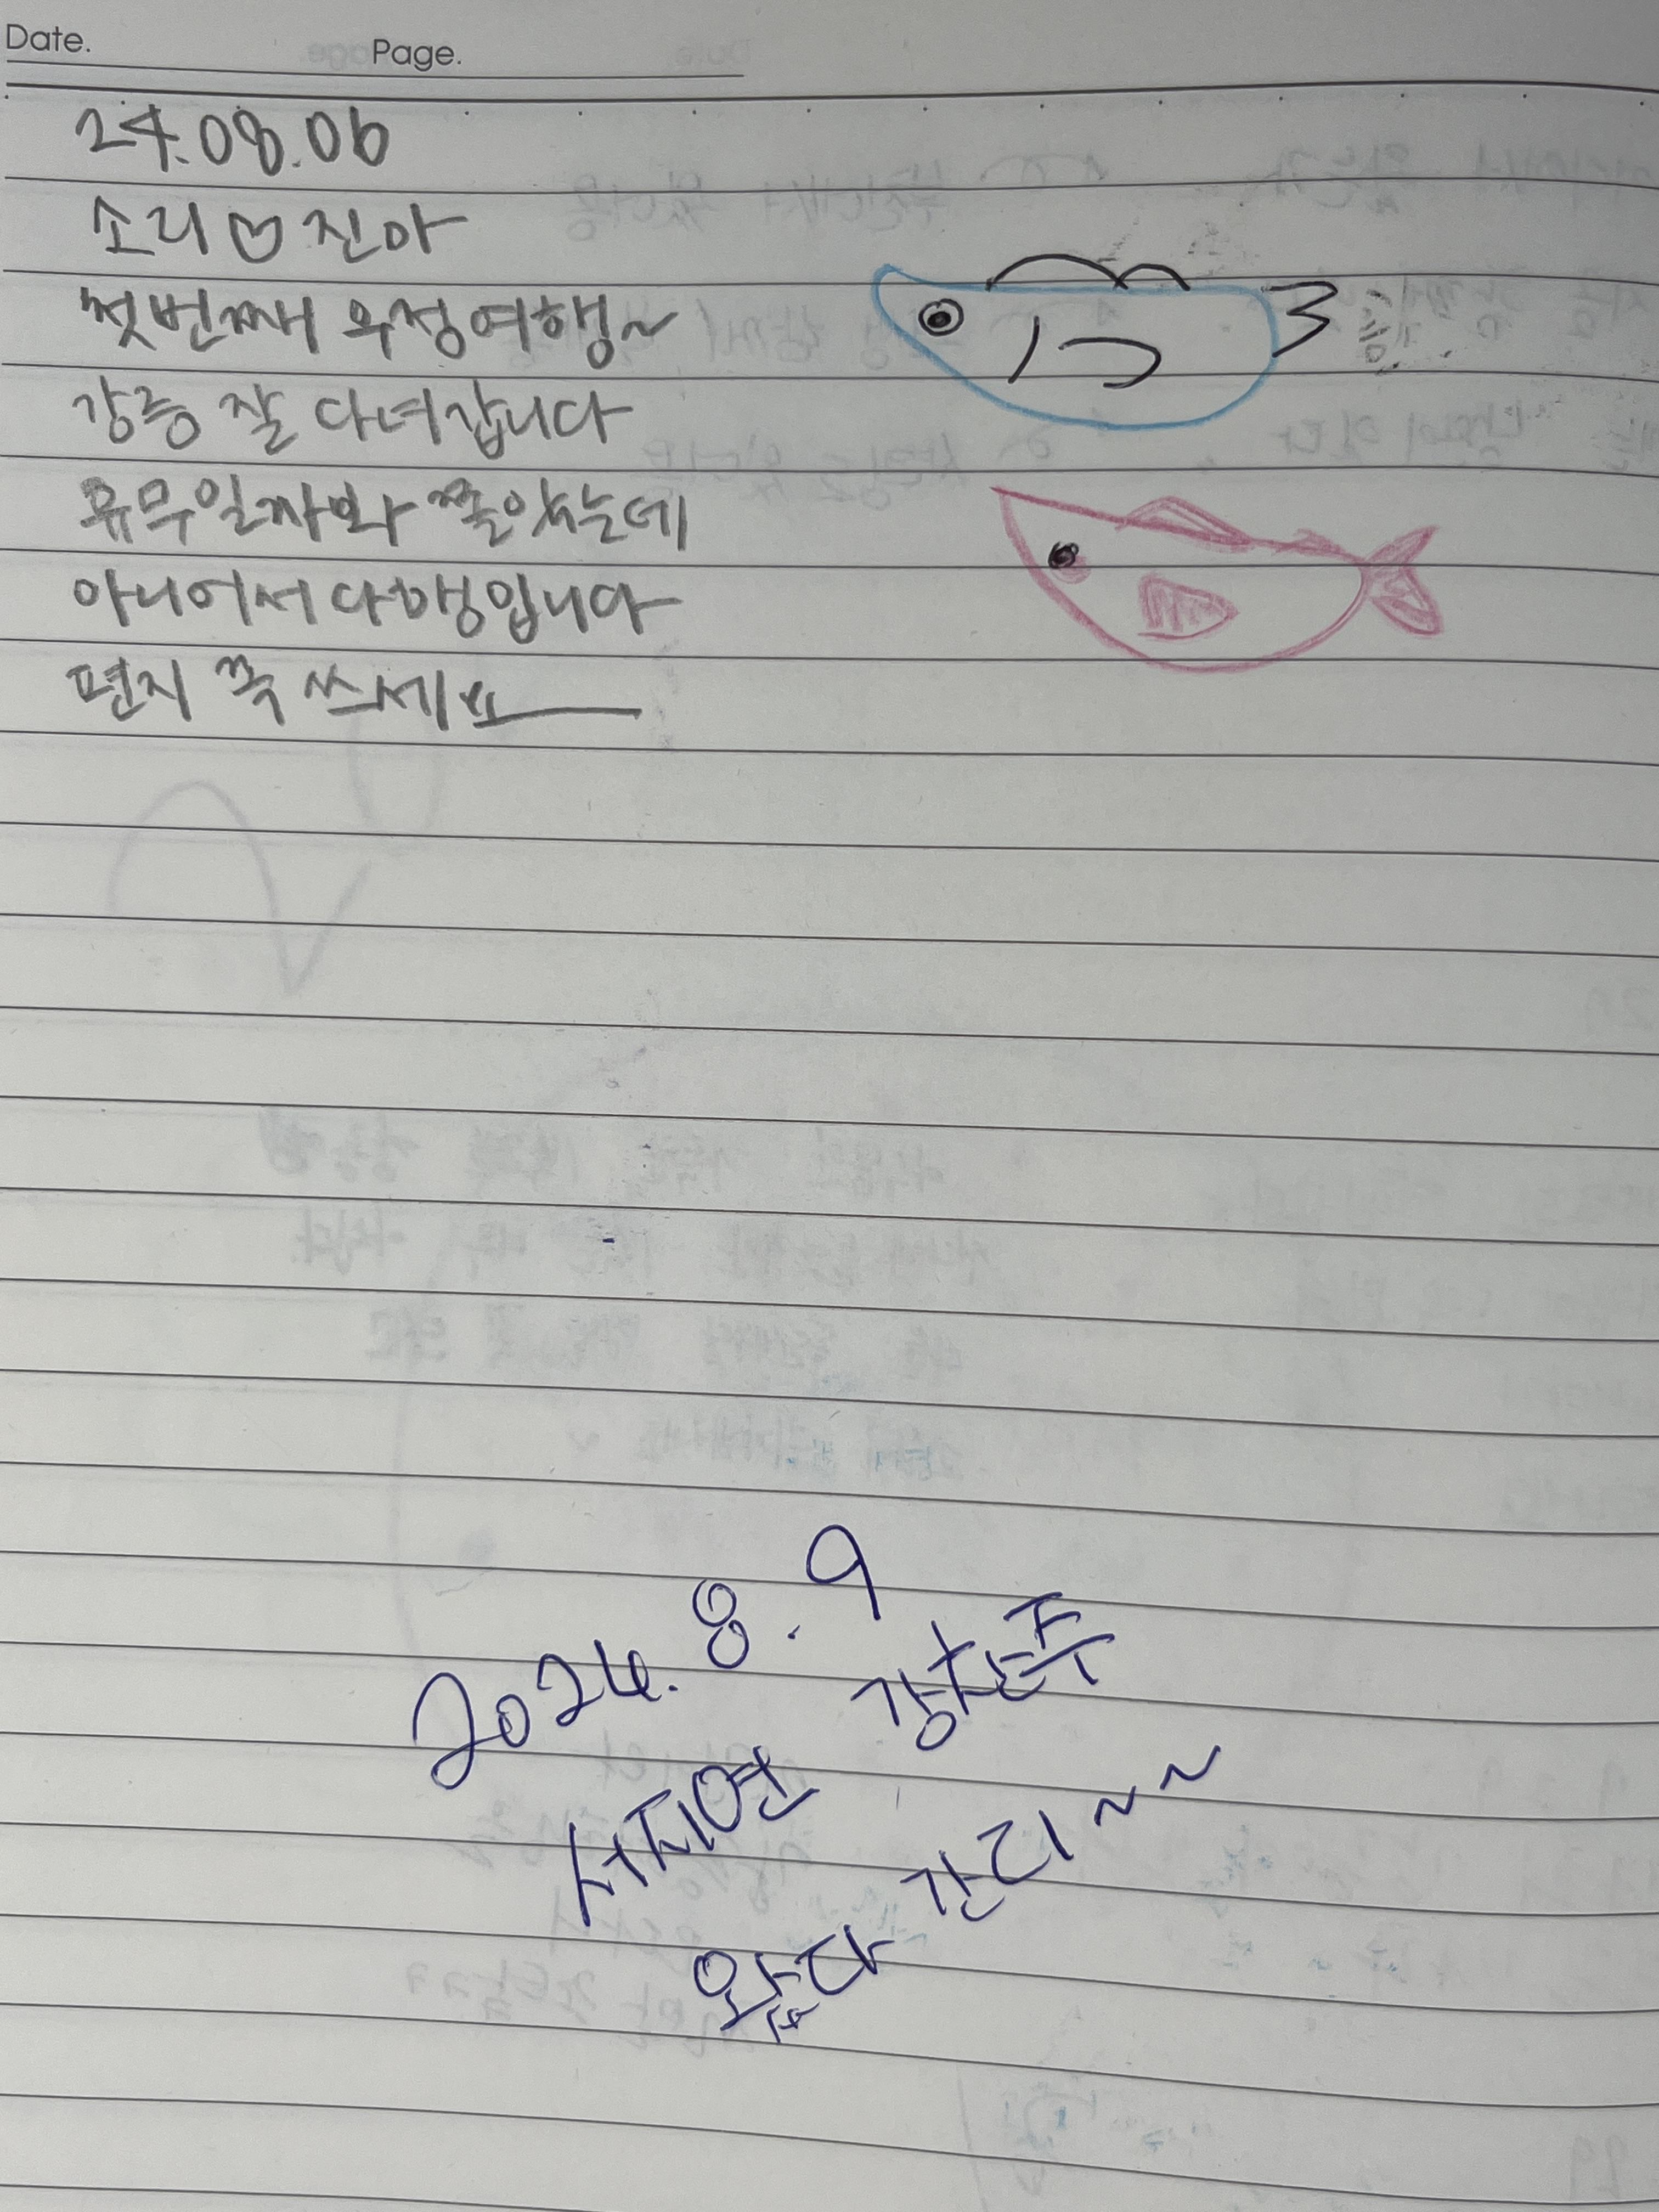 Date. Page.
24.08.06
소리♡진아
첫번째 우정여행~
강릉 잘 다녀갑니다
휴무일까봐 쫄았는데
아니어서 다행입니다
편지 쭉 쓰세요
2024. 8. 9
서지연 강찬주
왔다 간다~~